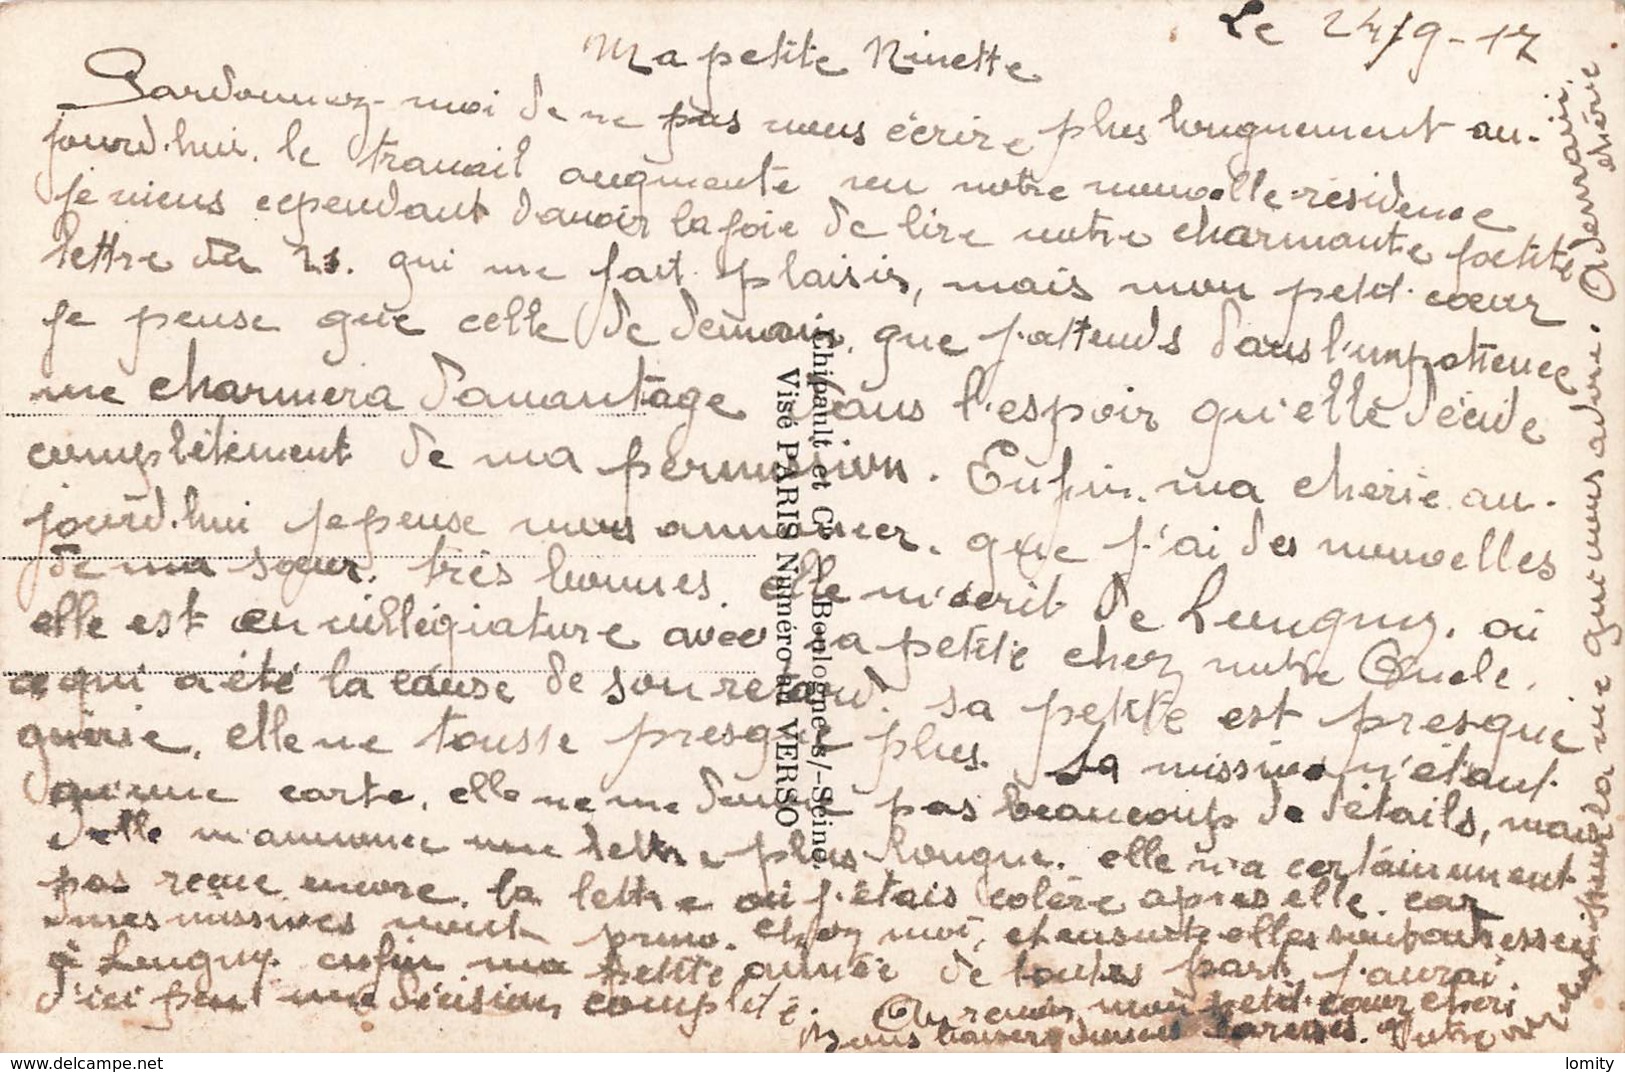 Le 24/9-17
Ma petite Ninette
Pardonnez-moi de ne pas vous écrire plus longuement au-
jourd'hui. le travail augmente en notre nouvelle résidence
je viens cependant d'avoir la joie de lire votre charmante petite
lettre du 21. qui me fait plaisir, mais mon petit cœur
je pense que celle de demain, que j'attends dans l'impatience
me charmera d'avantage dans l'espoir qu'elle décide
complètement de ma permission. Enfin, ma chérie au-
jourd'hui je peuse vous annoncer, que j'ai des nouvelles
de ma sœur, très bonnes, elle m'écrit de Leugny, où
elle est en villégiature avec sa petite chez notre Oncle,
ce qui a été la cause de son retard. Sa petite est presque
guérie, elle ne tousse presque plus. La missive n'étant
qu'une carte, elle ne me donne pas beaucoup de détails, mais
elle m'annonce une lettre plus longue. elle n'a certainement
pas reçue encore, la lettre où j'étais colère après elle, car
mes missives vont primo, chez moi, et ensuite elles sont adressées
à Leugny. enfin ma petite année de toutes parts j'aurai
d'ici peu une décision complète. Au revoir, mon petit cœur chéri
Bons baisers donnes caresses. Votre
pour la vie qui vous adore. A demain, chérie
Chipault et Cie — Boulogne s/-Seine.
Visé PARIS Numéro au VERSO
© delcampe.net
lomity